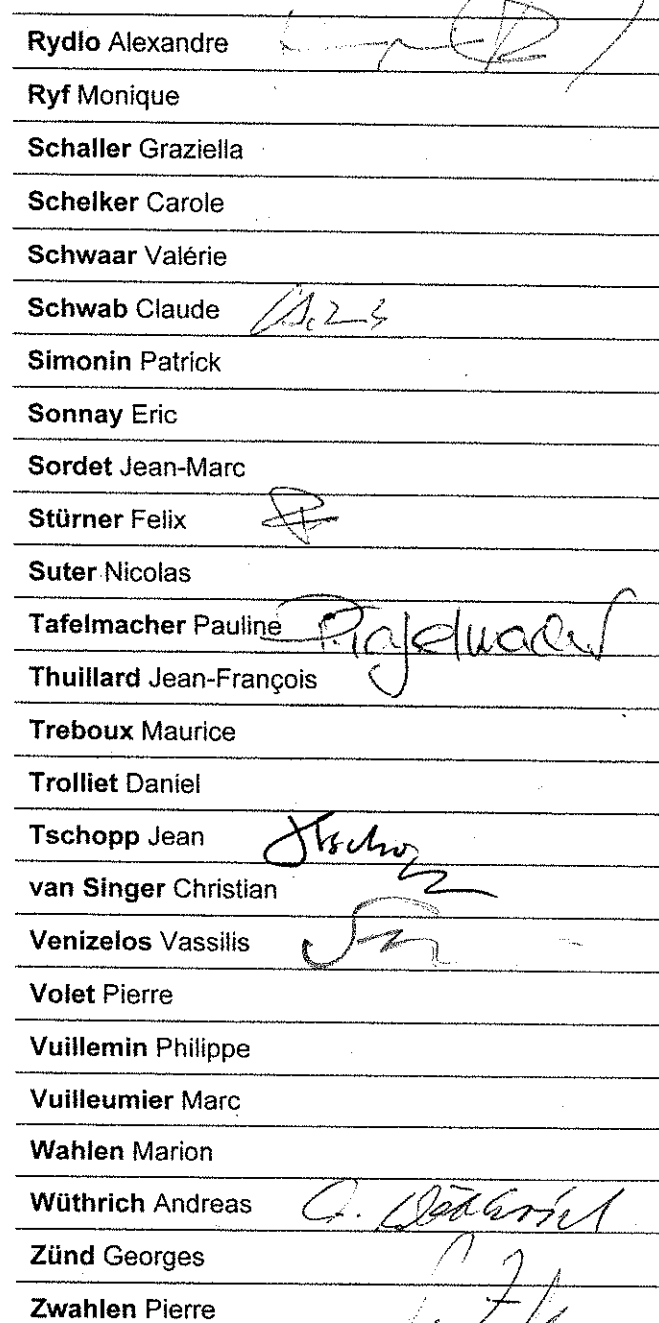 Rydlo Alexandre
Ryf Monique
Schaller Graziella
Schelker Carole
Schwaar Valérie
Schwab Claude
Simonin Patrick
Sonnay Eric
Sordet Jean-Marc
Stürner Felix
Suter Nicolas
Tafelmacher Pauline P.Tafelmacher
Thuillard Jean-François
Treboux Maurice
Trolliet Daniel
Tschopp Jean JTschopp
van Singer Christian
Venizelos Vassilis
Volet Pierre
Vuillemin Philippe
Vuilleumier Marc
Wahlen Marion
Wüthrich Andreas A. Wüthrich
Zünd Georges
Zwahlen Pierre